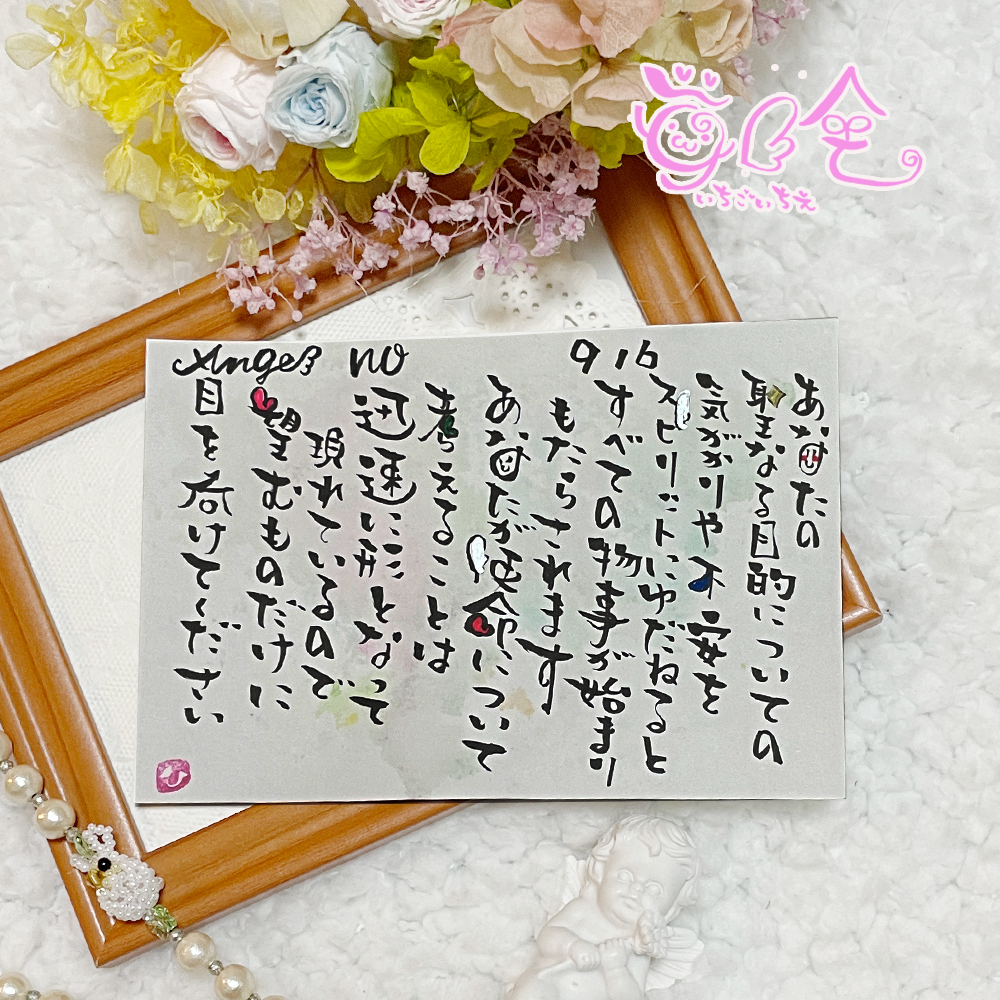 Angel NO 916
あなたの
聖なる目的についての
気がかりや不安を
スピリットにゆだねると
すべての物事が始まり
もたらされます
あなたが使命について
考えることは
迅速に形となって
現れているので
望むものだけに
目を向けてください
いちごいちえ